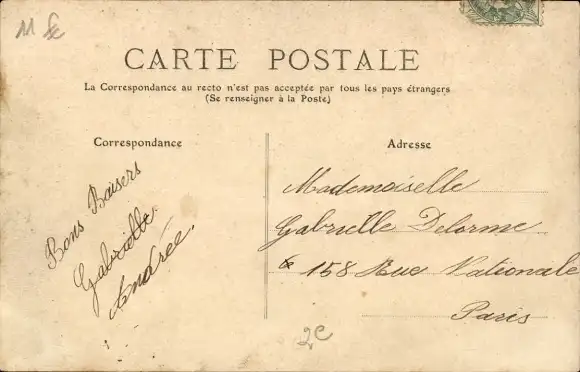 11 fc
CARTE POSTALE
La Correspondance au recto n'est pas acceptée par tous les pays étrangers
(Se renseigner à la Poste)
Correspondance
Bons Baisers
Gabrielle
Andrée.
Adresse
Mademoiselle
Gabrielle Delorme
158 Rue Nationale
Paris
2C